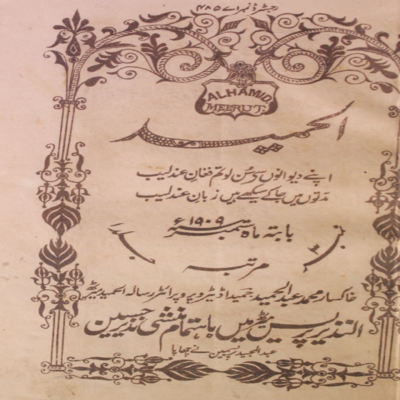 رجسٹرڈ نمبر اے ۴۸۵
ALHAMID
MEERUT.
الحمید
اپنے دیوانوں سے سُن لو تم فغان عندلیب
مدتوں میں جا کے سیکھے ہیں زبان عندلیب
بابتہ ماہ ستمبر ۱۹۰۹ء
مرتبہ
خاکسار محمد عبدالحمید حمید اڈیٹر و پروپرائٹر رسالہ الحمید میرٹھ
النذیر پریس میرٹھ میں باہتمام منشی نذیر حسین
عبدالمجید پریسمین نے چھاپا